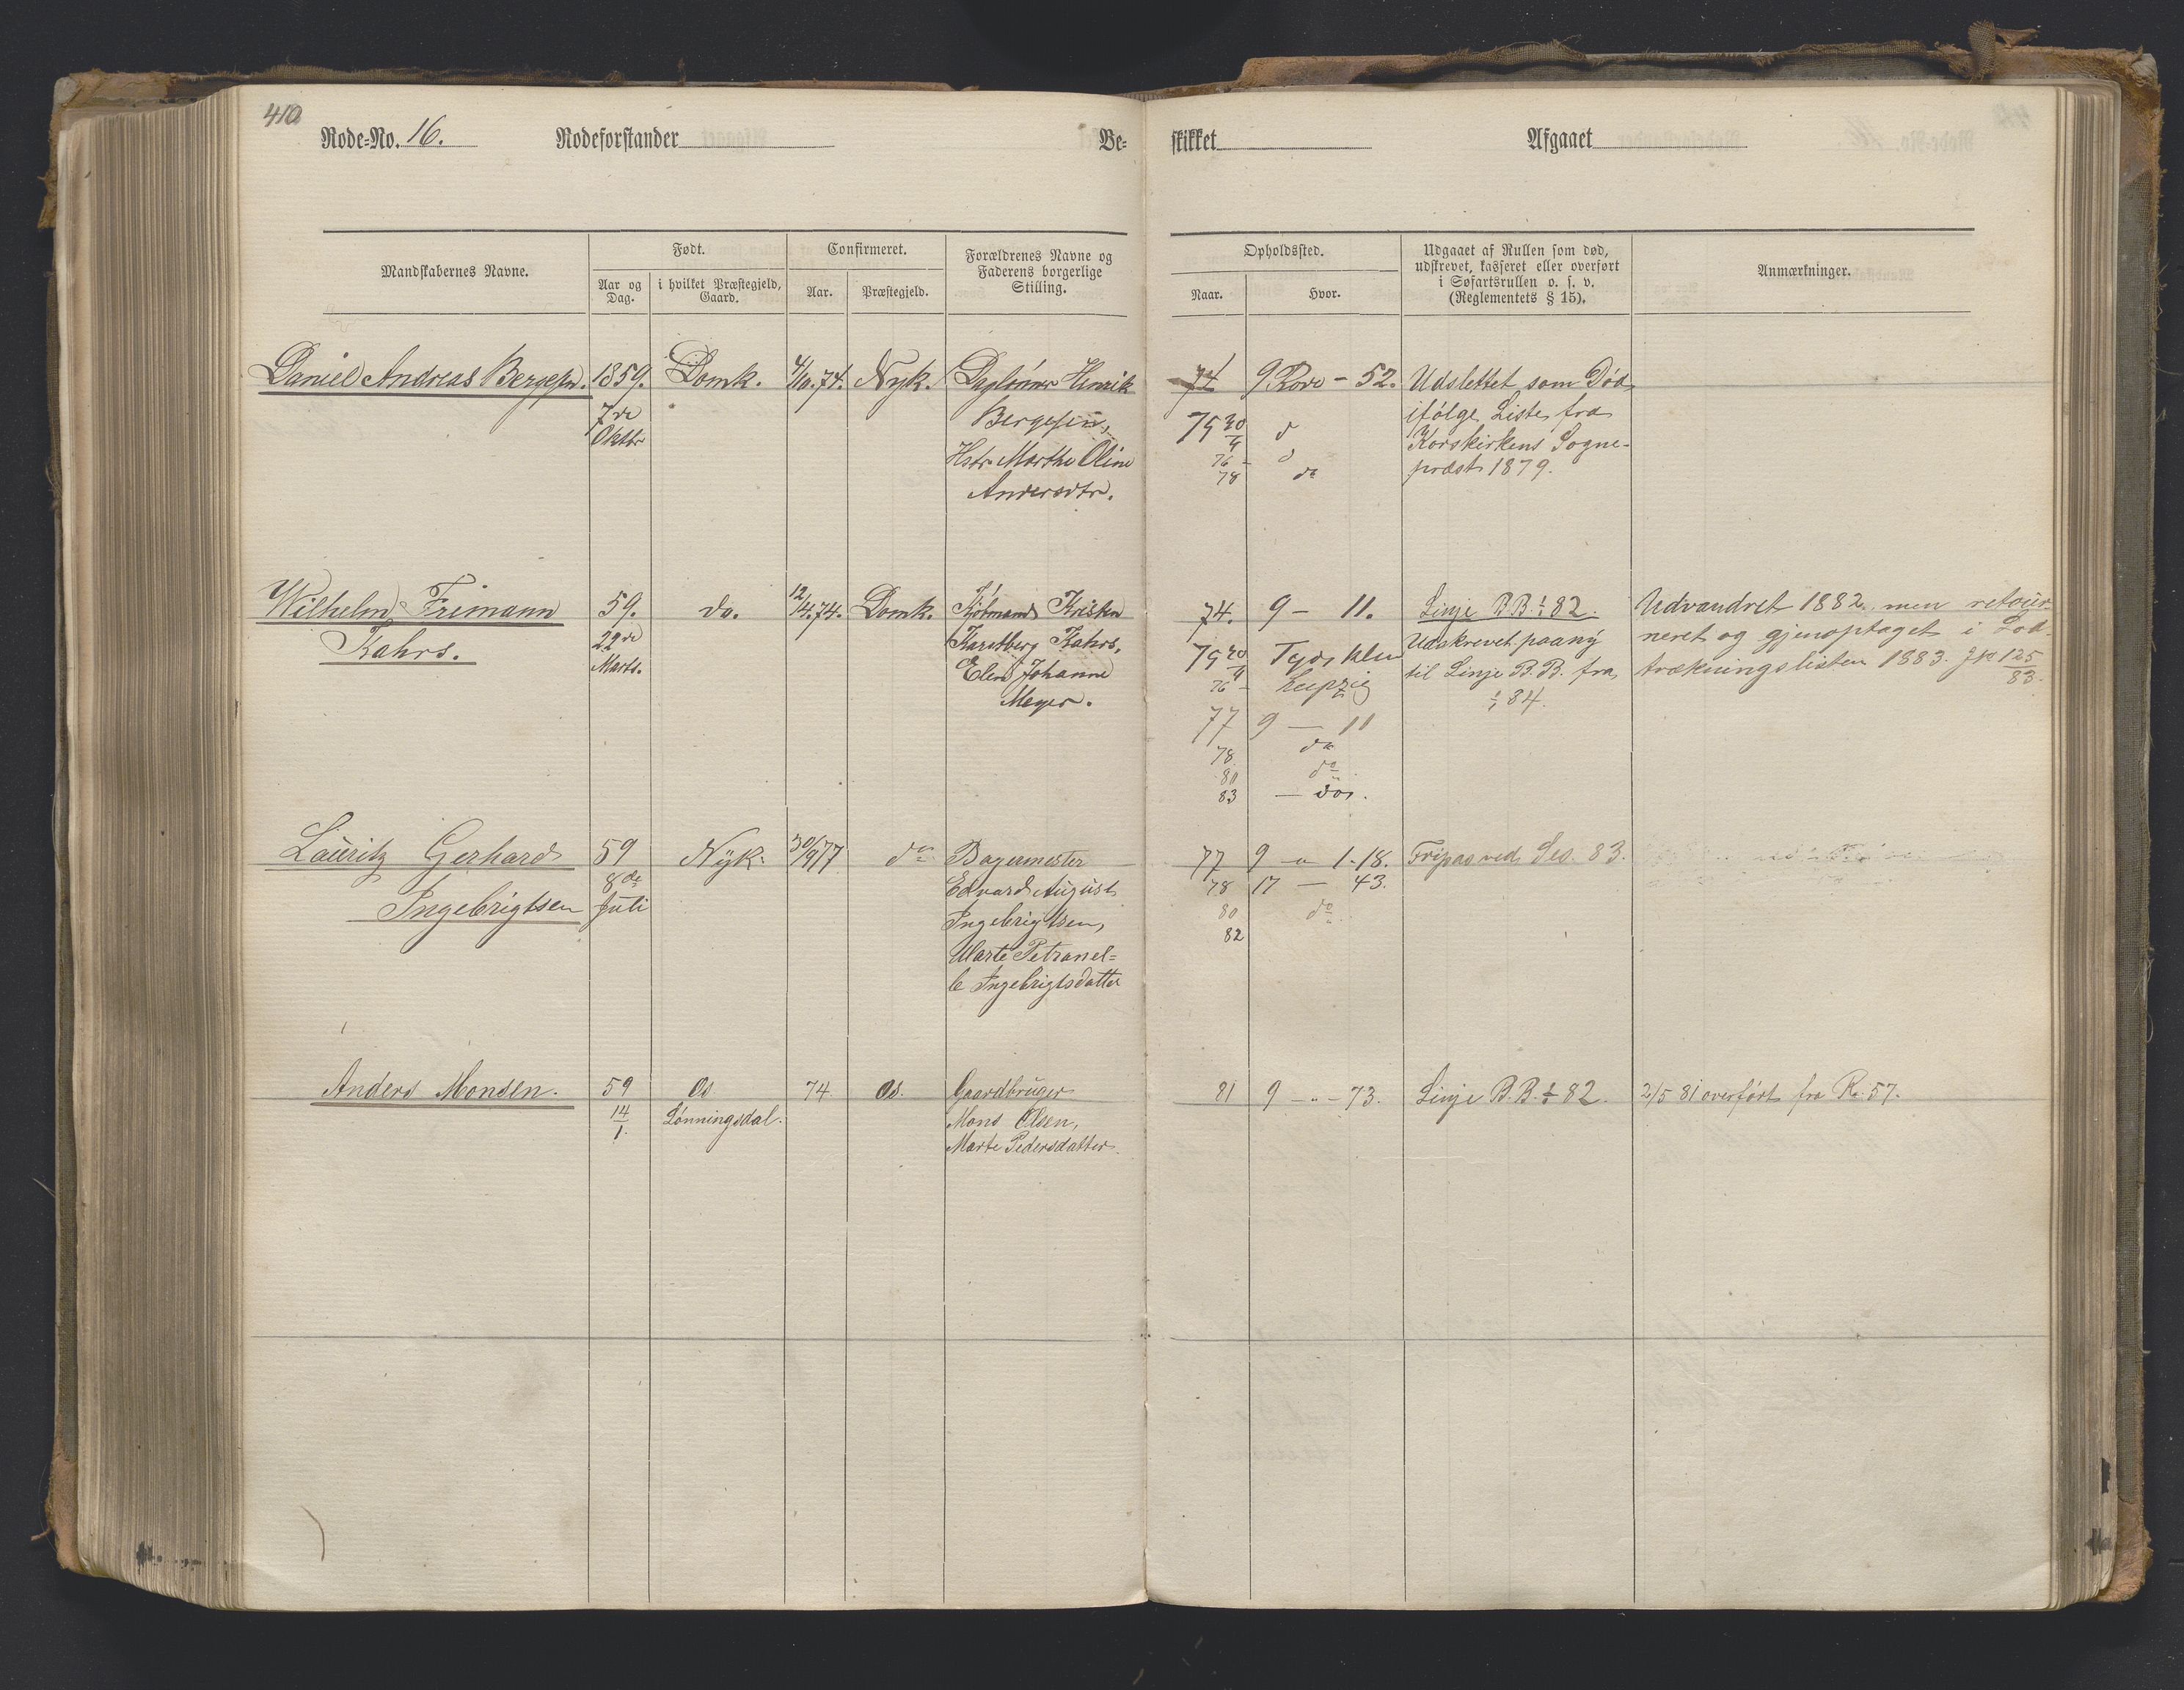 410
Rode=No. 16. Rodeforstander Be= skikket Afgaaet
Mandskabernes Navne.
Født.
Aar og Dag.
i hvilket Præstegjeld, Gaard.
Confirmeret.
Aar.
Præstegjeld.
Forældrenes Navne og
Faderens borgerlige
Stilling.
Opholdssted.
Naar.
Hvor.
Udgaaet af Rullen som død,
udskrevet, kasseret eller overført
i Søfartsrullen o. s. v.
(Reglementets § 15).
Anmærkninger.
Daniel Andreas Bergesen. 1859. Domk. 4/10.74. Nyk. Dagløner Henrik 74 9 Rode - 52. Udslettet som Død
7de Bergesen, 75 20/4 d ifølge Liste fra
Oktbr Hstr Marthe Oline 76 - d Korskirkens Sogne-
Andersdtr. 78 do præst 1879.
Wilhelm Frimann 59. do. 12/4.74. Domk. Kjøbmand Kristen 74. 9 - 11. Linje B.B. 1/1 82. Udvandret 1882, men retour-
Kahrs. 22de Karstberg Kahrs, 75 20/4 Tydskland Udskrevet paany neret og gjenoptaget i Lod-
Marts. Elen Johanne 76 - Leipzig til Linje B.B. fra trækningslisten 1883. Jr 125/83.
Meyer. 77 9 — 11 1/1 84.
78 do
80 do
83 — do.
Lauritz Gerhard 59 Nyk. 30/9 77 do Bagermester 77 9 - " 1-18. Fripas ved Ses. 83.
Ingebrigtsen 8de Juli Edvard August 78 17 — 43.
Ingebrigtsen, 80 do
Marte Petranel= 82
le Ingebrigtsdatter
Anders Monsen. 59 Os 74 Os. Gaardbruger 81 9 - " - 73. Linje B.B. 1/1 82. 2/5 81 overført fra Ro. 57.
14/1. Lønningsdal. Mons Olsen,
Marte Pedersdatter.